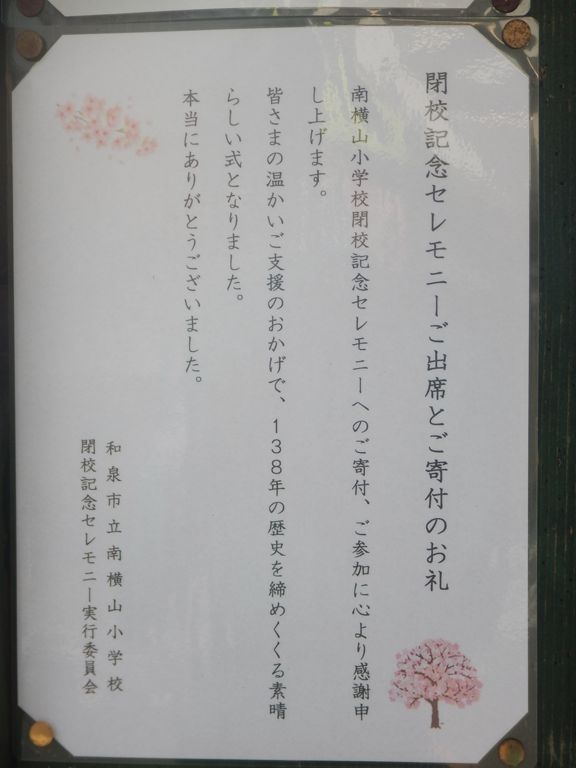 閉校記念セレモニーご出席とご寄付のお礼
南横山小学校閉校記念セレモニーへのご寄付、ご参加に心より感謝申
し上げます。
皆さまの温かいご支援のおかげで、138年の歴史を締めくくる素晴
らしい式となりました。
本当にありがとうございました。
和泉市立南横山小学校
閉校記念セレモニー実行委員会